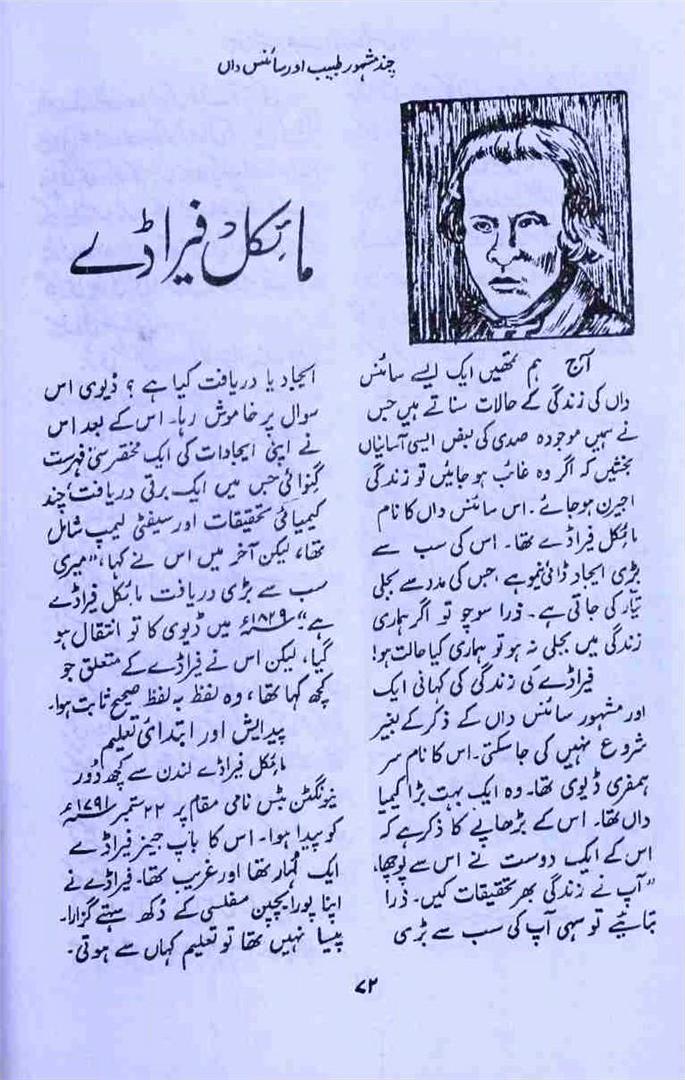 چند مشہور طبیب اور سائنس داں
مائیکل فیراڈے
آج ہم تمھیں ایک ایسے سائنس
داں کی زندگی کے حالات سناتے ہیں جس
نے ہمیں موجودہ صدی کی بعض ایسی آسانیاں
بخشیں کہ اگر وہ غائب ہو جائیں تو زندگی
اجیرن ہو جائے۔ اس سائنس داں کا نام
مائیکل فیراڈے تھا۔ اس کی سب سے
بڑی ایجاد ڈائنیمو ہے، جس کی مدد سے بجلی
تیار کی جاتی ہے۔ ذرا سوچو تو اگر ہماری
زندگی میں بجلی نہ ہو تو ہماری کیا حالت ہو!
فیراڈے کی زندگی کی کہانی ایک
اور مشہور سائنس داں کے ذکر کے بغیر
شروع نہیں کی جا سکتی۔ اس کا نام سر
ہمفری ڈیوی تھا۔ وہ ایک بہت بڑا کیمیا
داں تھا۔ اس کے بڑھاپے کا ذکر ہے کہ
اس کے ایک دوست نے اس سے پوچھا،
”آپ نے زندگی بھر تحقیقات کیں۔ ذرا
بتائیے تو سہی آپ کی سب سے بڑی
ایجاد یا دریافت کیا ہے؟ ڈیوی اس
سوال پر خاموش رہا۔ اس کے بعد اس
نے اپنی ایجادات کی ایک مختصر سی فہرست
گنوائی جس میں ایک برقی دریافت، چند
کیمیائی تحقیقات اور سیفٹی لیمپ شامل
تھا، لیکن آخر میں اس نے کہا، ”میری
سب سے بڑی دریافت مائیکل فیراڈے
ہے“ ۱۸۲۹ء میں ڈیوی کا تو انتقال ہو
گیا، لیکن اس نے فیراڈے کے متعلق جو
کچھ کہا تھا، وہ لفظ بہ لفظ صحیح ثابت ہوا۔
پیدایش اور ابتدائی تعلیم
مائیکل فیراڈے لندن سے کچھ دُور
نیونگٹن بٹس نامی مقام پر ۲۲ ستمبر ۱۷۹۱ء
کو پیدا ہوا۔ اس کا باپ جیمز فیراڈے
ایک لُہار تھا اور غریب تھا۔ فیراڈے نے
اپنا پورا بچپن مفلسی کے دُکھ سہتے گزارا۔
پیسا نہیں تھا تو تعلیم کہاں سے ہوتی۔
۷۲